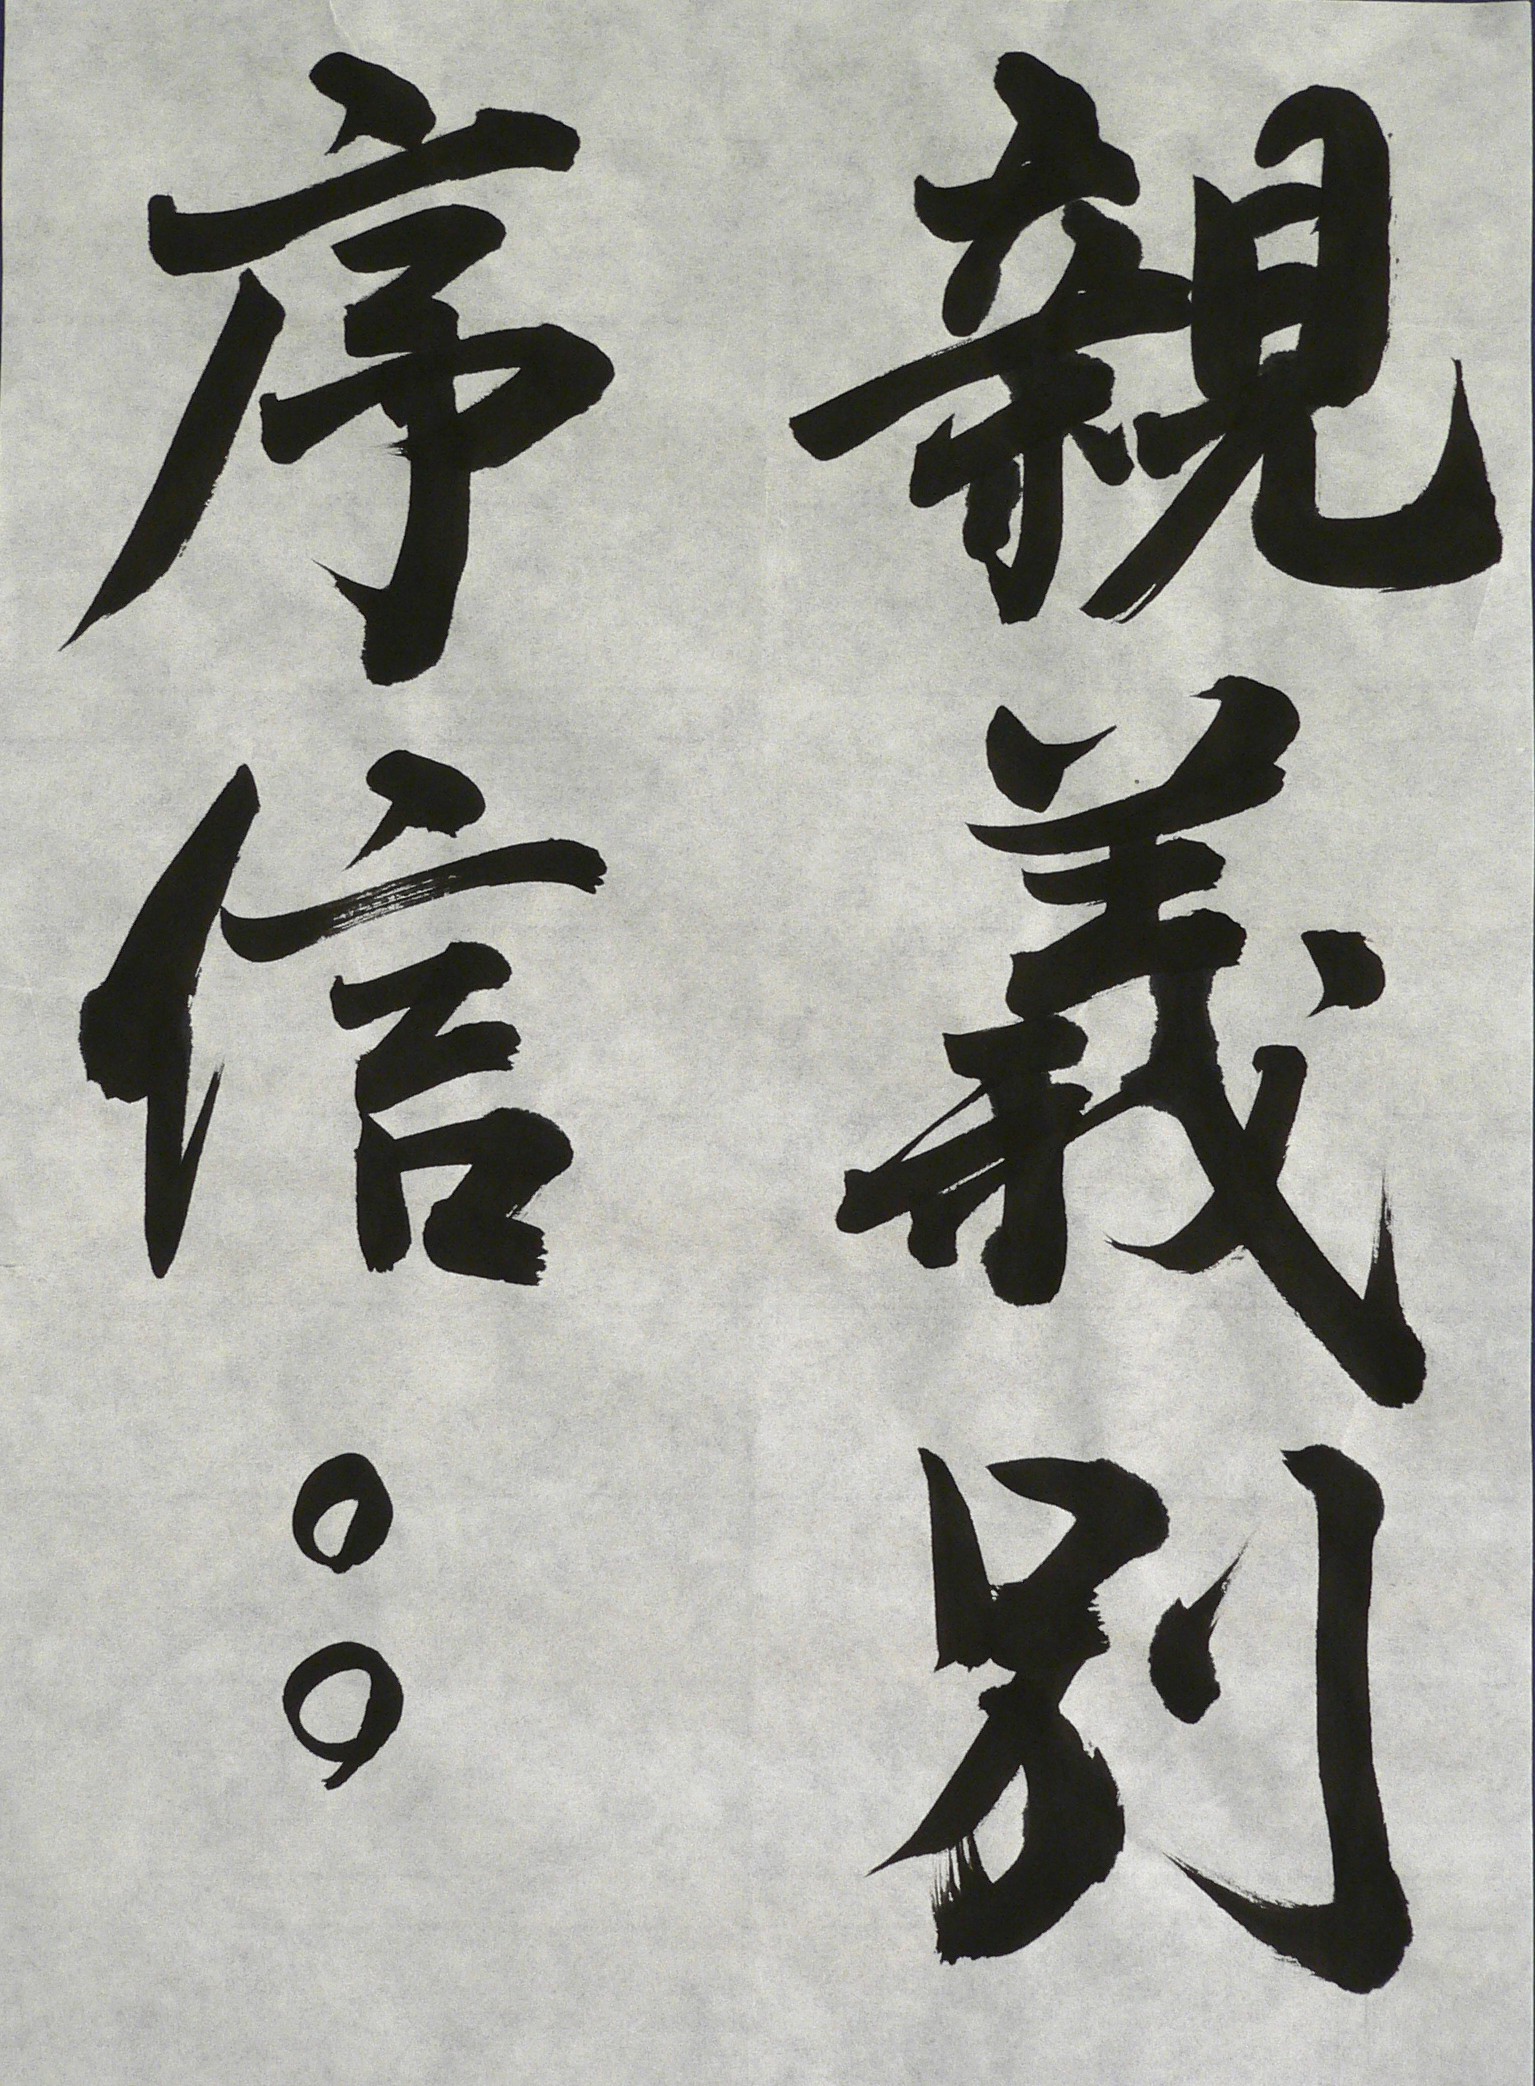 親義別
序信。。